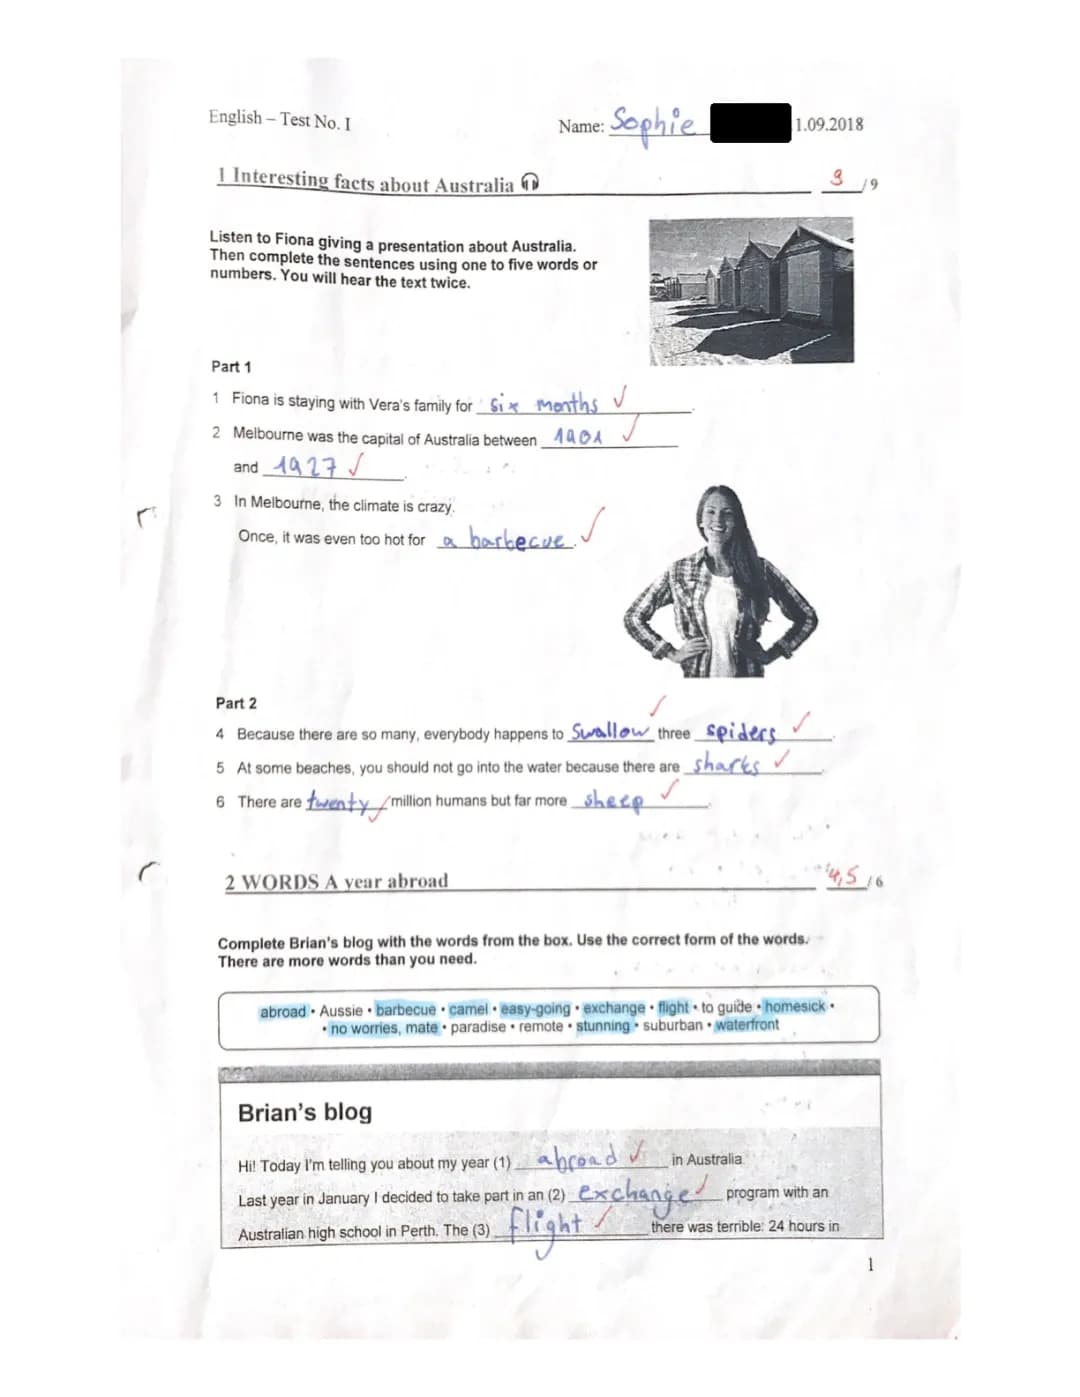 English – Test No. I
Name: Sophie 1.09.2018
1 Interesting facts about Australia 9 /9
Listen to Fiona giving a presentation about Australia.
Then complete the sentences using one to five words or
numbers. You will hear the text twice.
Part 1
1 Fiona is staying with Vera's family for six months ✓.
2 Melbourne was the capital of Australia between 1901 ✓
and 1927 ✓.
3 In Melbourne, the climate is crazy.
Once, it was even too hot for a barbecue. ✓
Part 2
4 Because there are so many, everybody happens to swallow ✓ three spiders ✓.
5 At some beaches, you should not go into the water because there are sharks ✓.
6 There are twenty ✓ million humans but far more sheep ✓.
2 WORDS A year abroad 4,5 /6
Complete Brian's blog with the words from the box. Use the correct form of the words.
There are more words than you need.
abroad • Aussie • barbecue • camel • easy-going • exchange • flight • to guide • homesick •
• no worries, mate • paradise • remote • stunning • suburban • waterfront
Brian's blog
Hi! Today I'm telling you about my year (1) abroad ✓ in Australia.
Last year in January I decided to take part in an (2) exchange ✓ program with an
Australian high school in Perth. The (3) flight ✓ there was terrible: 24 hours in
1